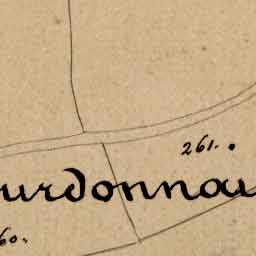 261.
urdonnai
60.